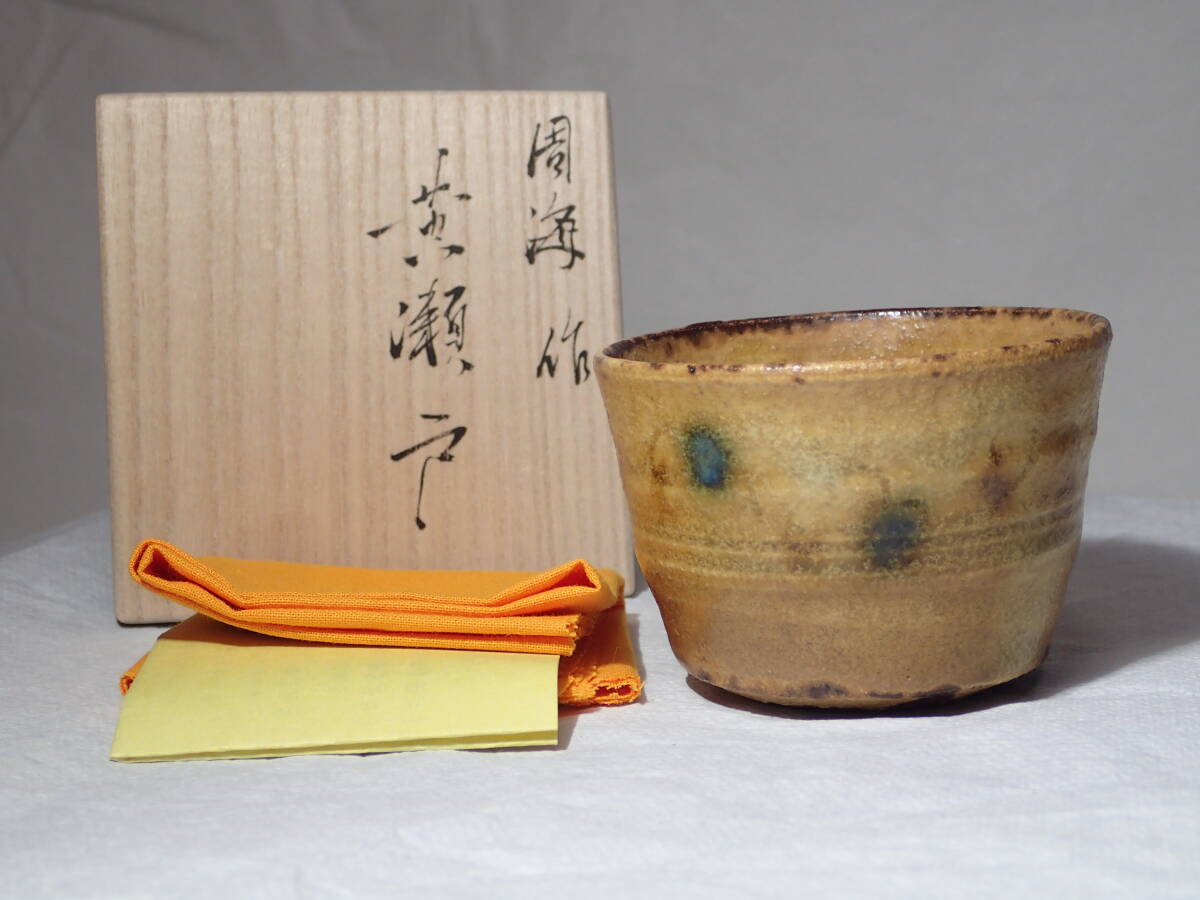 周海作
黄瀬戸